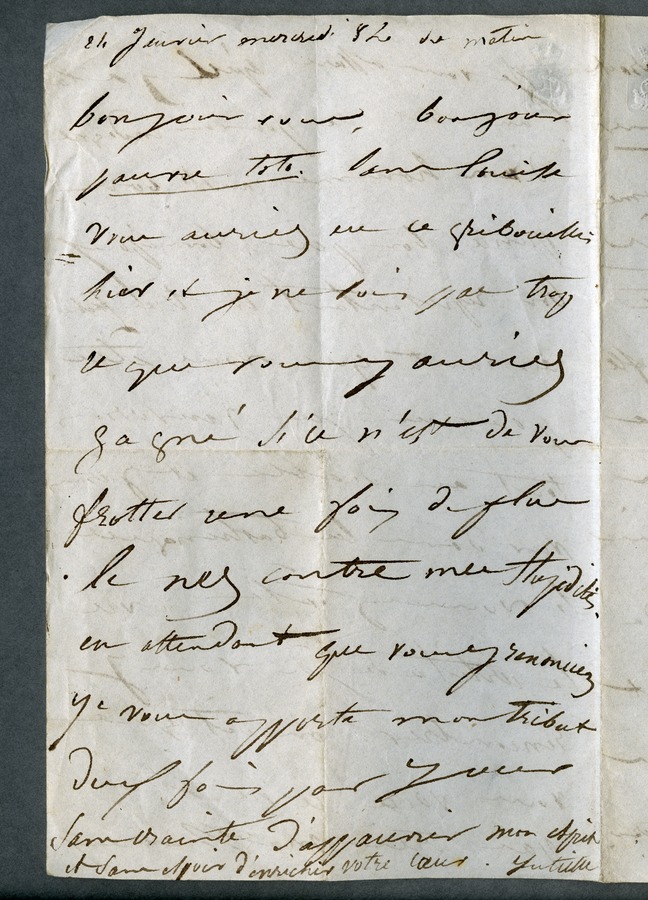 Janvier mercredi du matin
bonjour vous, bonjour
pauvre toto. Sans Louise
vous auriez eu ce gribouillis
hier et je ne sais pas trop
ce que vous y auriez
gagné si ce n'est de vous
frotter une fois de plus
le nez contre mes stupidités.
en attendant que vous y renonciez
je vous apporte mon tribut
deux fois par jour
sans crainte d'appauvrir mon esprit
et sans espoir d'enrichir votre cœur. Juliette